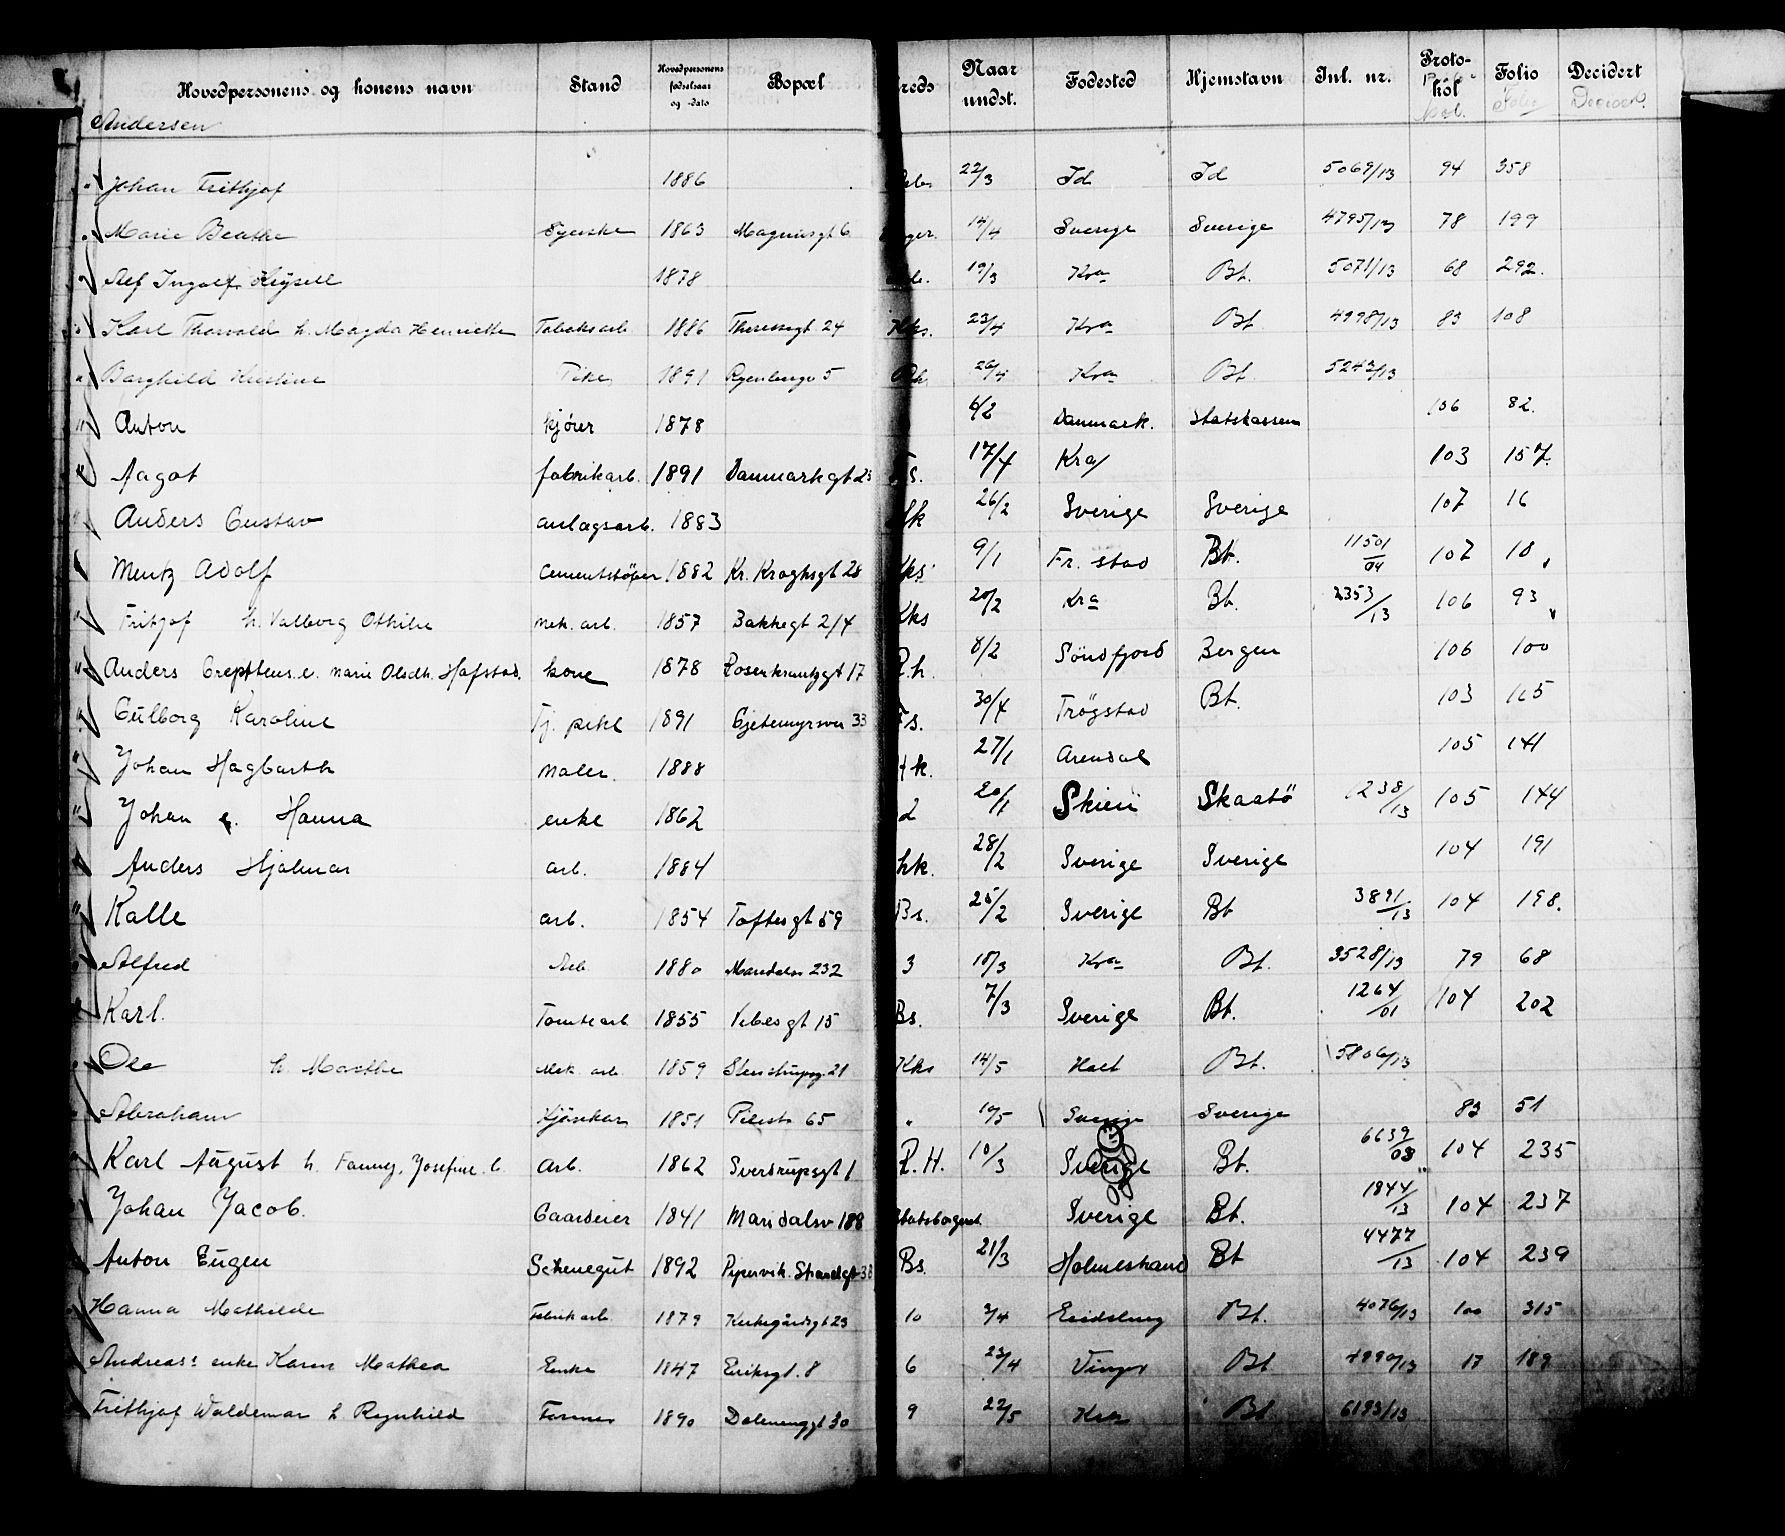 Hovedpersonens og konens navn Stand Hovedpersonens fødselsaar og -dato Bopæl Kreds Naar undst. Fødested Hjemstavn Inl. nr. Protokol Folio Decidert
Andersen
" Johan Frithjof 1886 22/3 Id Id 5069/13 94 358
" Marie Beathe Syerske 1863 Magnusgt 6 14/4 Sverige Sverige 4795/13 78 199
" Alf Ingolf 1878 19/3 Kra Bt. 5071/13 68 292.
" Karl Thorvald h. Magda Henriette Tobaksarb 1886 Theresesgt 24 Kks. 23/4 Kra Bt. 4998/13 83 108
" Borghild Kristine Pike 1891 Ryenberg 5 Rh 26/4 Kra Bt. 5242/13
" Anton kjører 1878 6/2 Danmark. Statskassen 106 82.
" Aagot fabrikarb. 1891 Danmarkgt 23 s. 17/4 Kra 103 157.
" Anders Gustav anlagsarb. 1883 k 26/2 Sverige Sverige 107 16
" Mentz Adolf Cementstøper 1882 Kr. Kroghsgt 28 Kks 9/1 Fr. stad Bt. 11501/04 107 18
" Fritjof h. Valborg Othilie mek. arb. 1857 Bakkegt 2/4 Kks 20/2 Kra Bt. 2353/13 106 93
" Anders e. Marie Hofstad. kone 1878 Rosenkrantzgt 17 R.h. 8/2 Söndfjord Bergen 106 100
" Gulborg Karoline Tj. pike 1891 Gjetemyrsvei 33 s. 30/4 Trögstad Bt. 103 165
" Johan Hagbarth Maler. 1888 k. 27/1 Arendal 105 141
" Johan e. Hanna enke 1862 2 20/1 Skien Skaatö 1238/13 105 144
" Anders Hjalmar arb. 1884 hk. 28/2 Sverige Sverige 104 191
" Kalle arb. 1854 Toftesgt 59 Bs. 25/2 Sverige Bt 3891/13 104 198.
" Alfred Arb 1880 Maridalsv 232 3 18/3 Kra Bt. 3528/13 79 68
" Karl. Tomtearb 1855 Vibesgt 15 Bs. 7/3 Sverige Bt. 1264/01 104 202
" Ole h. Marthe Mek. arb. 1859 Stenstrupsg. 21 Kks 14/5 Holt Bt. 5806/13
" Abraham Kjørekar 1851 Pilest 65 " 10/5 Sverige Sverige 83 51
" Karl August h. Fanny, Josefine. arb. 1862 Sverdrupsgt 1 R.H. 10/3 Sverige Bt. 6639/08 104 235
" Johan Jacob. Gaardeier 1841 Maridalsv 188 Statsborgerret Sverige Bt. 1844/13 104 237
" Anton Eugen 1892 Pipervik. Strandgt 33 Bs 21/3 Holmestrand Bt 4477/13 104 239
" Hanna Mathilde Fabrikarb 1879 Kirkegårdsgt 23 10 3/4 Eidsberg Bt. 4076/13 100 315
" Andreas: enke Karen Mathea Enke 1847 Eriksgt. 8 6 23/4 Vinger Bt 4990/13 17 189
" Frithjof Waldemar h Ragnhild Former 1890 Dælenenggt 30 9 22/5 Kra Bt 6193/13